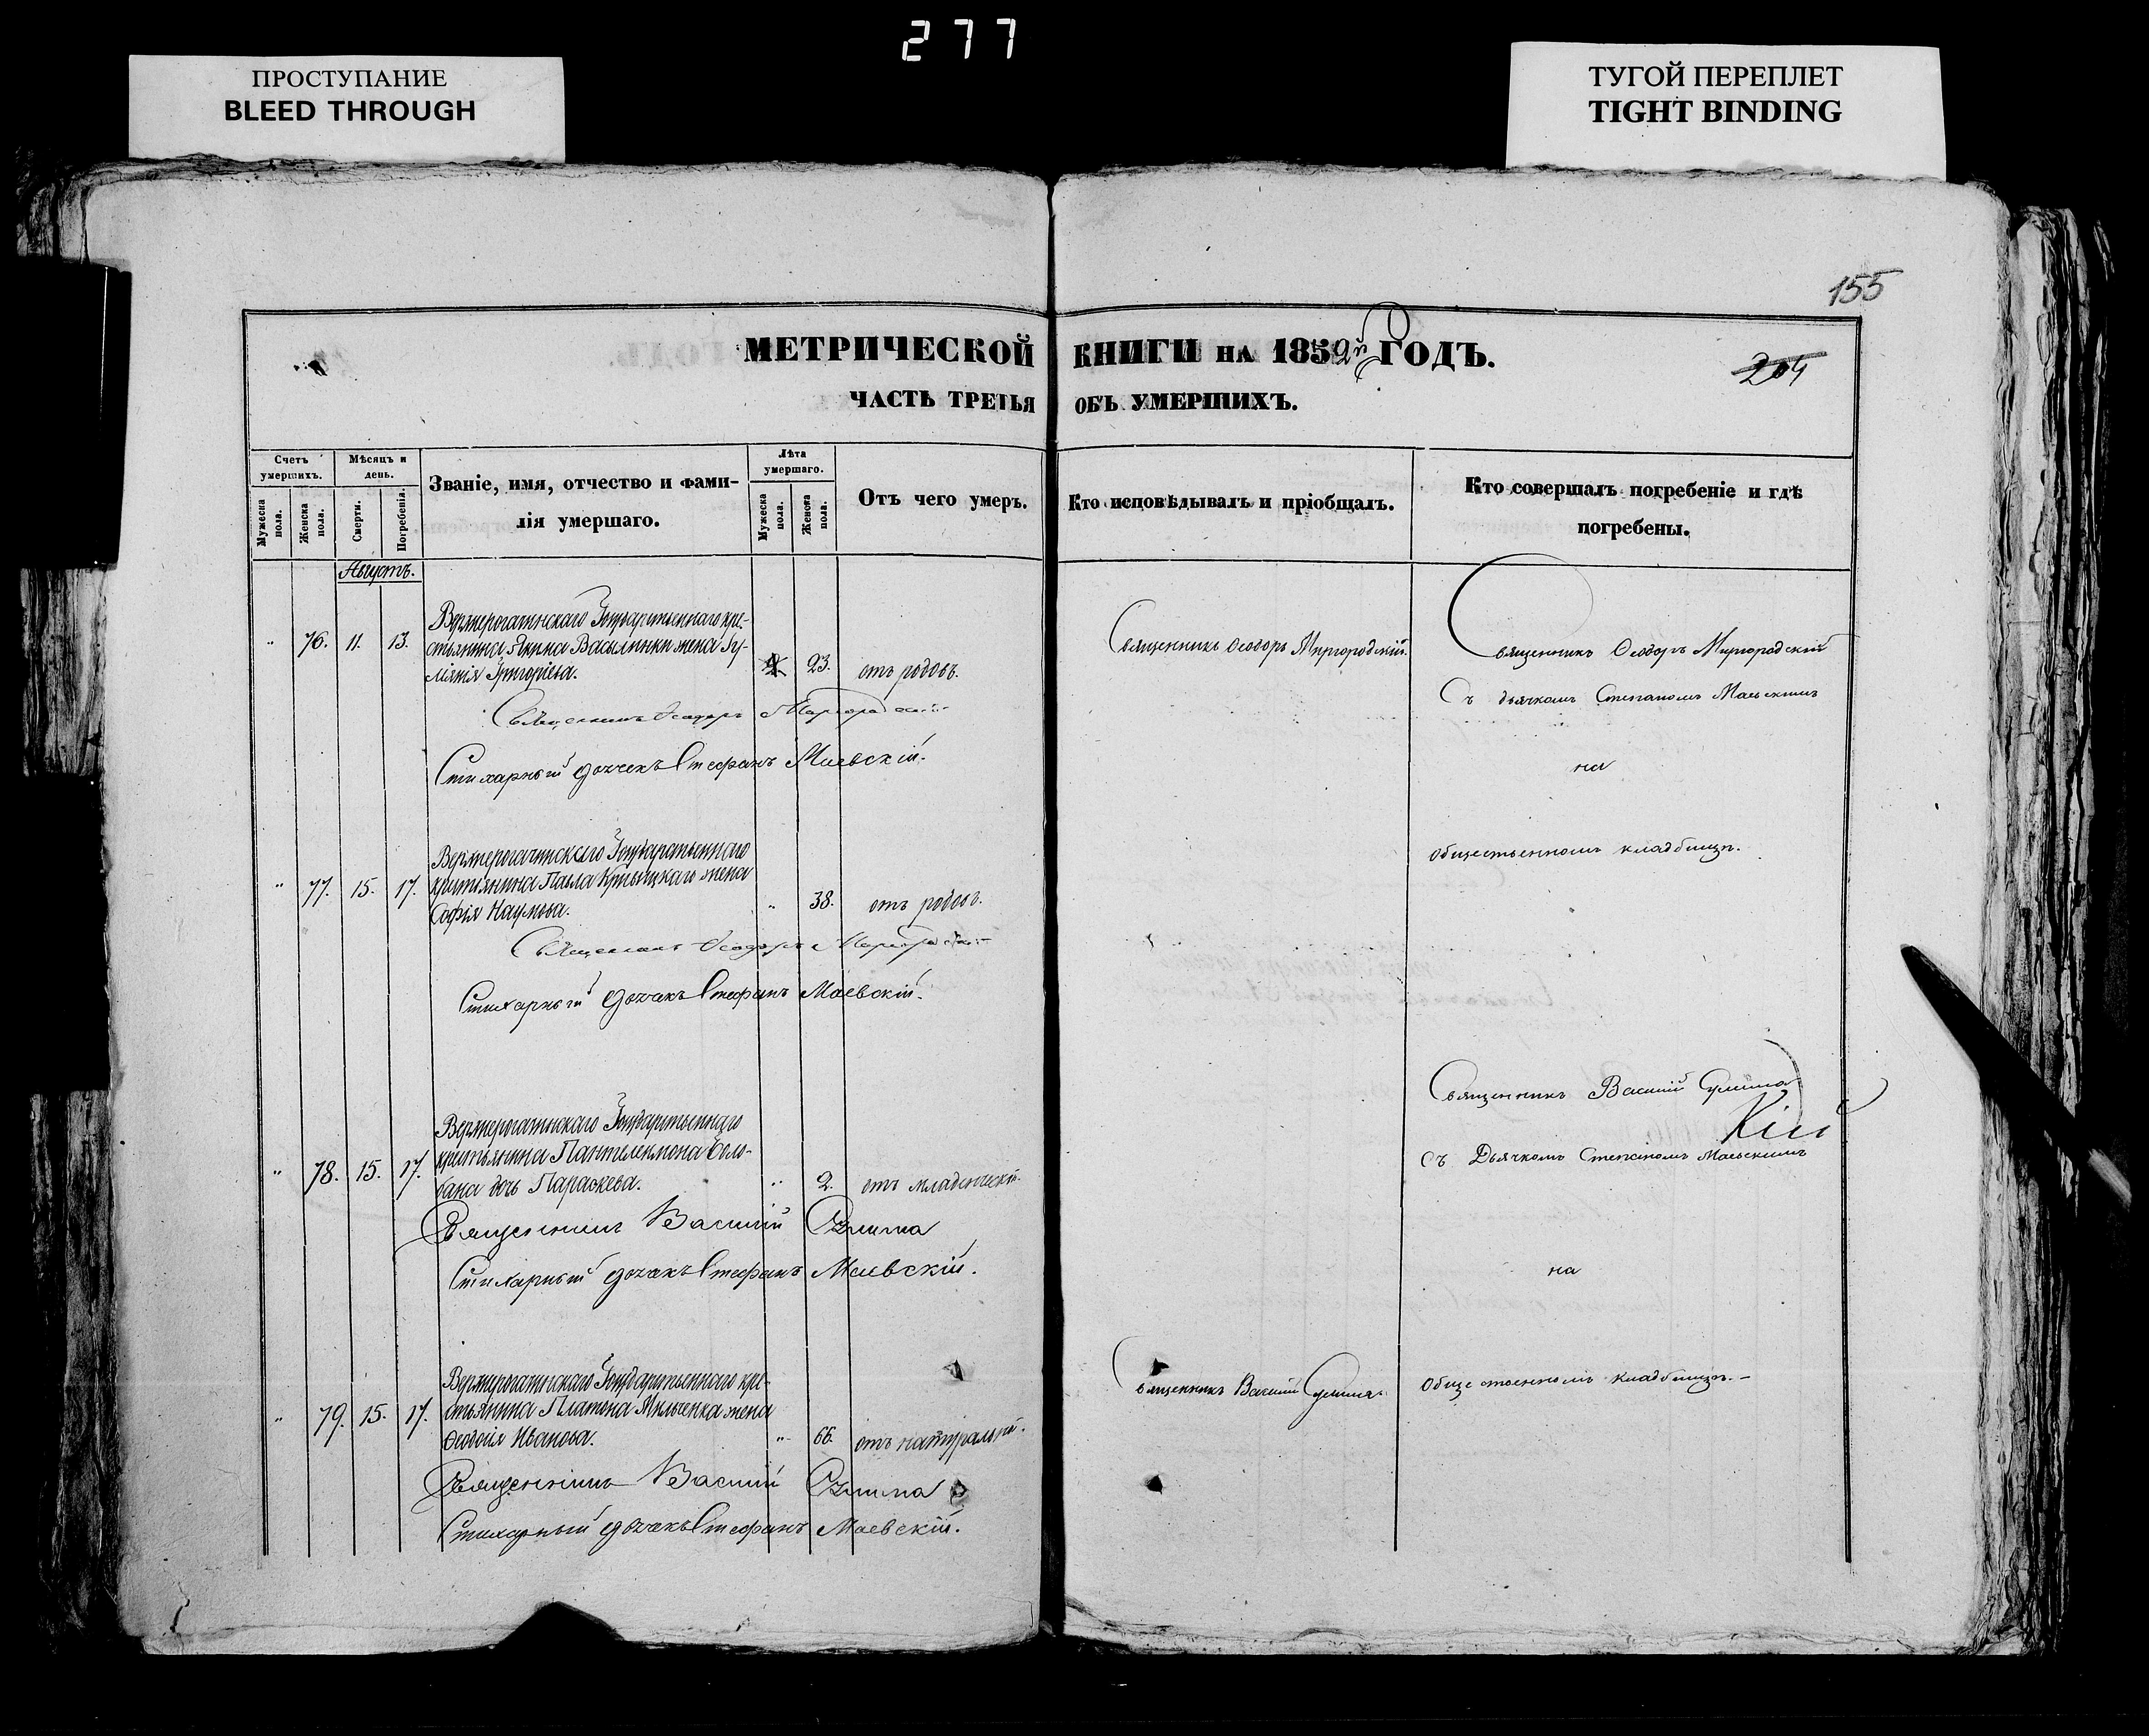 277
ПРОСТУПАНИЕ
BLEED THROUGH
ТУГОЙ ПЕРЕПЛЕТ
TIGHT BINDING
155
МЕТРИЧЕСКОЙ КНИГИ НА 1852й ГОДЪ.
204
ЧАСТЬ ТРЕТЬЯ ОБЪ УМЕРШИХЪ.
Счетъ умершихъ.
Мужеска пола.
Женска пола.
Мѣсяцъ и день.
Смерти.
Погребенія.
Званіе, имя, отчество и фами-
лія умершаго.
Лѣта умершаго.
Мужеска пола.
Женска пола.
Отъ чего умеръ.
Кто исповѣдывалъ и пріобщалъ.
Кто совершалъ погребеніе и гдѣ
погребены.
Августъ.
Верхнерогачинскаго Государственнаго кре-
" 76. 11. 13. стьянина Якима Васылинки жена Іу-
ліянія Григоріева. 23. отъ родовъ.
Священникъ Ѳеодоръ Миргородскій.
Священникъ Ѳеодоръ Миргородскій
Съ дьячкомъ Степаномъ Маевскимъ
на
общественномъ кладбищѣ.
Священникъ Ѳеодоръ Миргородскій
Стихарный дьячекъ Стефанъ Маевскій.
Верхнерогачинскаго Государственнаго
" 77. 15. 17. крестьянина Павла жена
Софія Наумова. " 38. отъ родовъ.
Священникъ Ѳеодоръ Миргородскій
Стихарный дьячекъ Стефанъ Маевскій.
Верхнерогачинскаго Государственнаго
" 78. 15. 17. крестьянина Пантелеимона Боло-
бана дочь Параскева. " 2. отъ младенческой.
Священникъ Василій Сулима
Стихарный дьячекъ Стефанъ Маевскій.
Священникъ Василій Сулима
Съ Дьячкомъ Степаномъ Маевскимъ
на
Общественномъ кладбищѣ.-
Верхнерогачинскаго Государственнаго кре-
" 79. 15. 17. стьянина Платона Мильченка жена
Ѳеодосія Иванова. " 66. отъ натуральной.
Священникъ Василій Сулима
Священникъ Василій Сулима
Стихарный дьячекъ Стефанъ Маевскій.